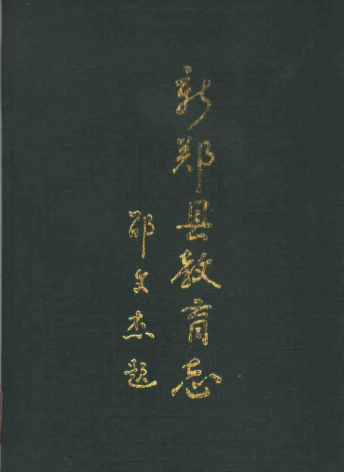 新郑县教育志
邵文杰题